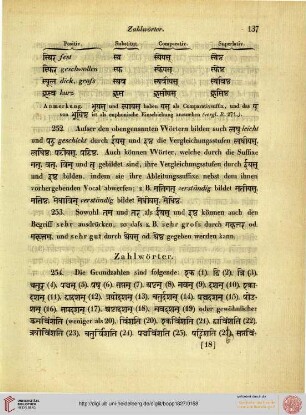 Zahlwörter.
137
Positiv. Substitut. Comparativ. Superlativ.
स्थिर fest स्थ स्थेयस् स्थेष्ठ
स्फिर geschwollen स्फ स्फेयस् स्फेष्ठ
स्थूल dick, groſs स्थव स्थवीयस् स्थविष्ठ
ह्रस्व kurz ह्रस ह्रसीयस् ह्रसिष्ठ
252. Auſser den obengenannten Wörtern bilden auch लघु leicht
und पटु geschickt durch ईयस् und इष्ठ die Vergleichungsstufen लघीयस्,
लघिष्ठ, पटीयस्, पटिष्ठ. Auch können Wörter, welche durch die Suffixe
मत्, वत्, विन् und तृ gebildet sind, ihre Vergleichungsstufen durch ईयस्
und इष्ठ bilden, indem sie ihre Ableitungssuffixe nebst dem ihnen
vorhergehenden Vocal abwerfen; z. B. मतिमत् verständig bildet मतीयस्,
मतिष्ठ; मेधाविन् verständig bildet मेधीयस्, मेधिष्ठ.
253. Sowohl तम und तर als ईयस् und इष्ठ können auch den
Begriff sehr ausdrücken, so daſs z. B. sehr groſs durch
und sehr gut durch श्रेयस् od. श्रेष्ठ gegeben werden kann.
Zahlwörter.
254. Die Grundzahlen sind folgende: एक (1). द्वि (2). त्रि (3).
चतुर् (4). पञ्चन् (5). षष् (6). सप्तन् (7). अष्टन् (8). नवन् (9). दशन् (10). एका-
दशन् (11). द्वादशन् (12). त्रयोदशन् (13). चतुर्दशन् (14). पञ्चदशन् (15). षोड-
शन् (16). सप्तदशन् (17). अष्टादशन् (18). नवदशन् (19) oder gewöhnlicher
ऊनविंशति (weniger als 20). विंशति (20). एकविंशति (21). द्वाविंशति (22).
त्रयोविंशति (23). चतुर्विंशति (24). पञ्चविंशति (25). षड्विंशति (26). सप्तविं-
[18]
http://digi.ub.uni-heidelberg.de/diglit/bopp1827/0158
UNIVERSITÄTS-
BIBLIOTHEK
HEIDELBERG